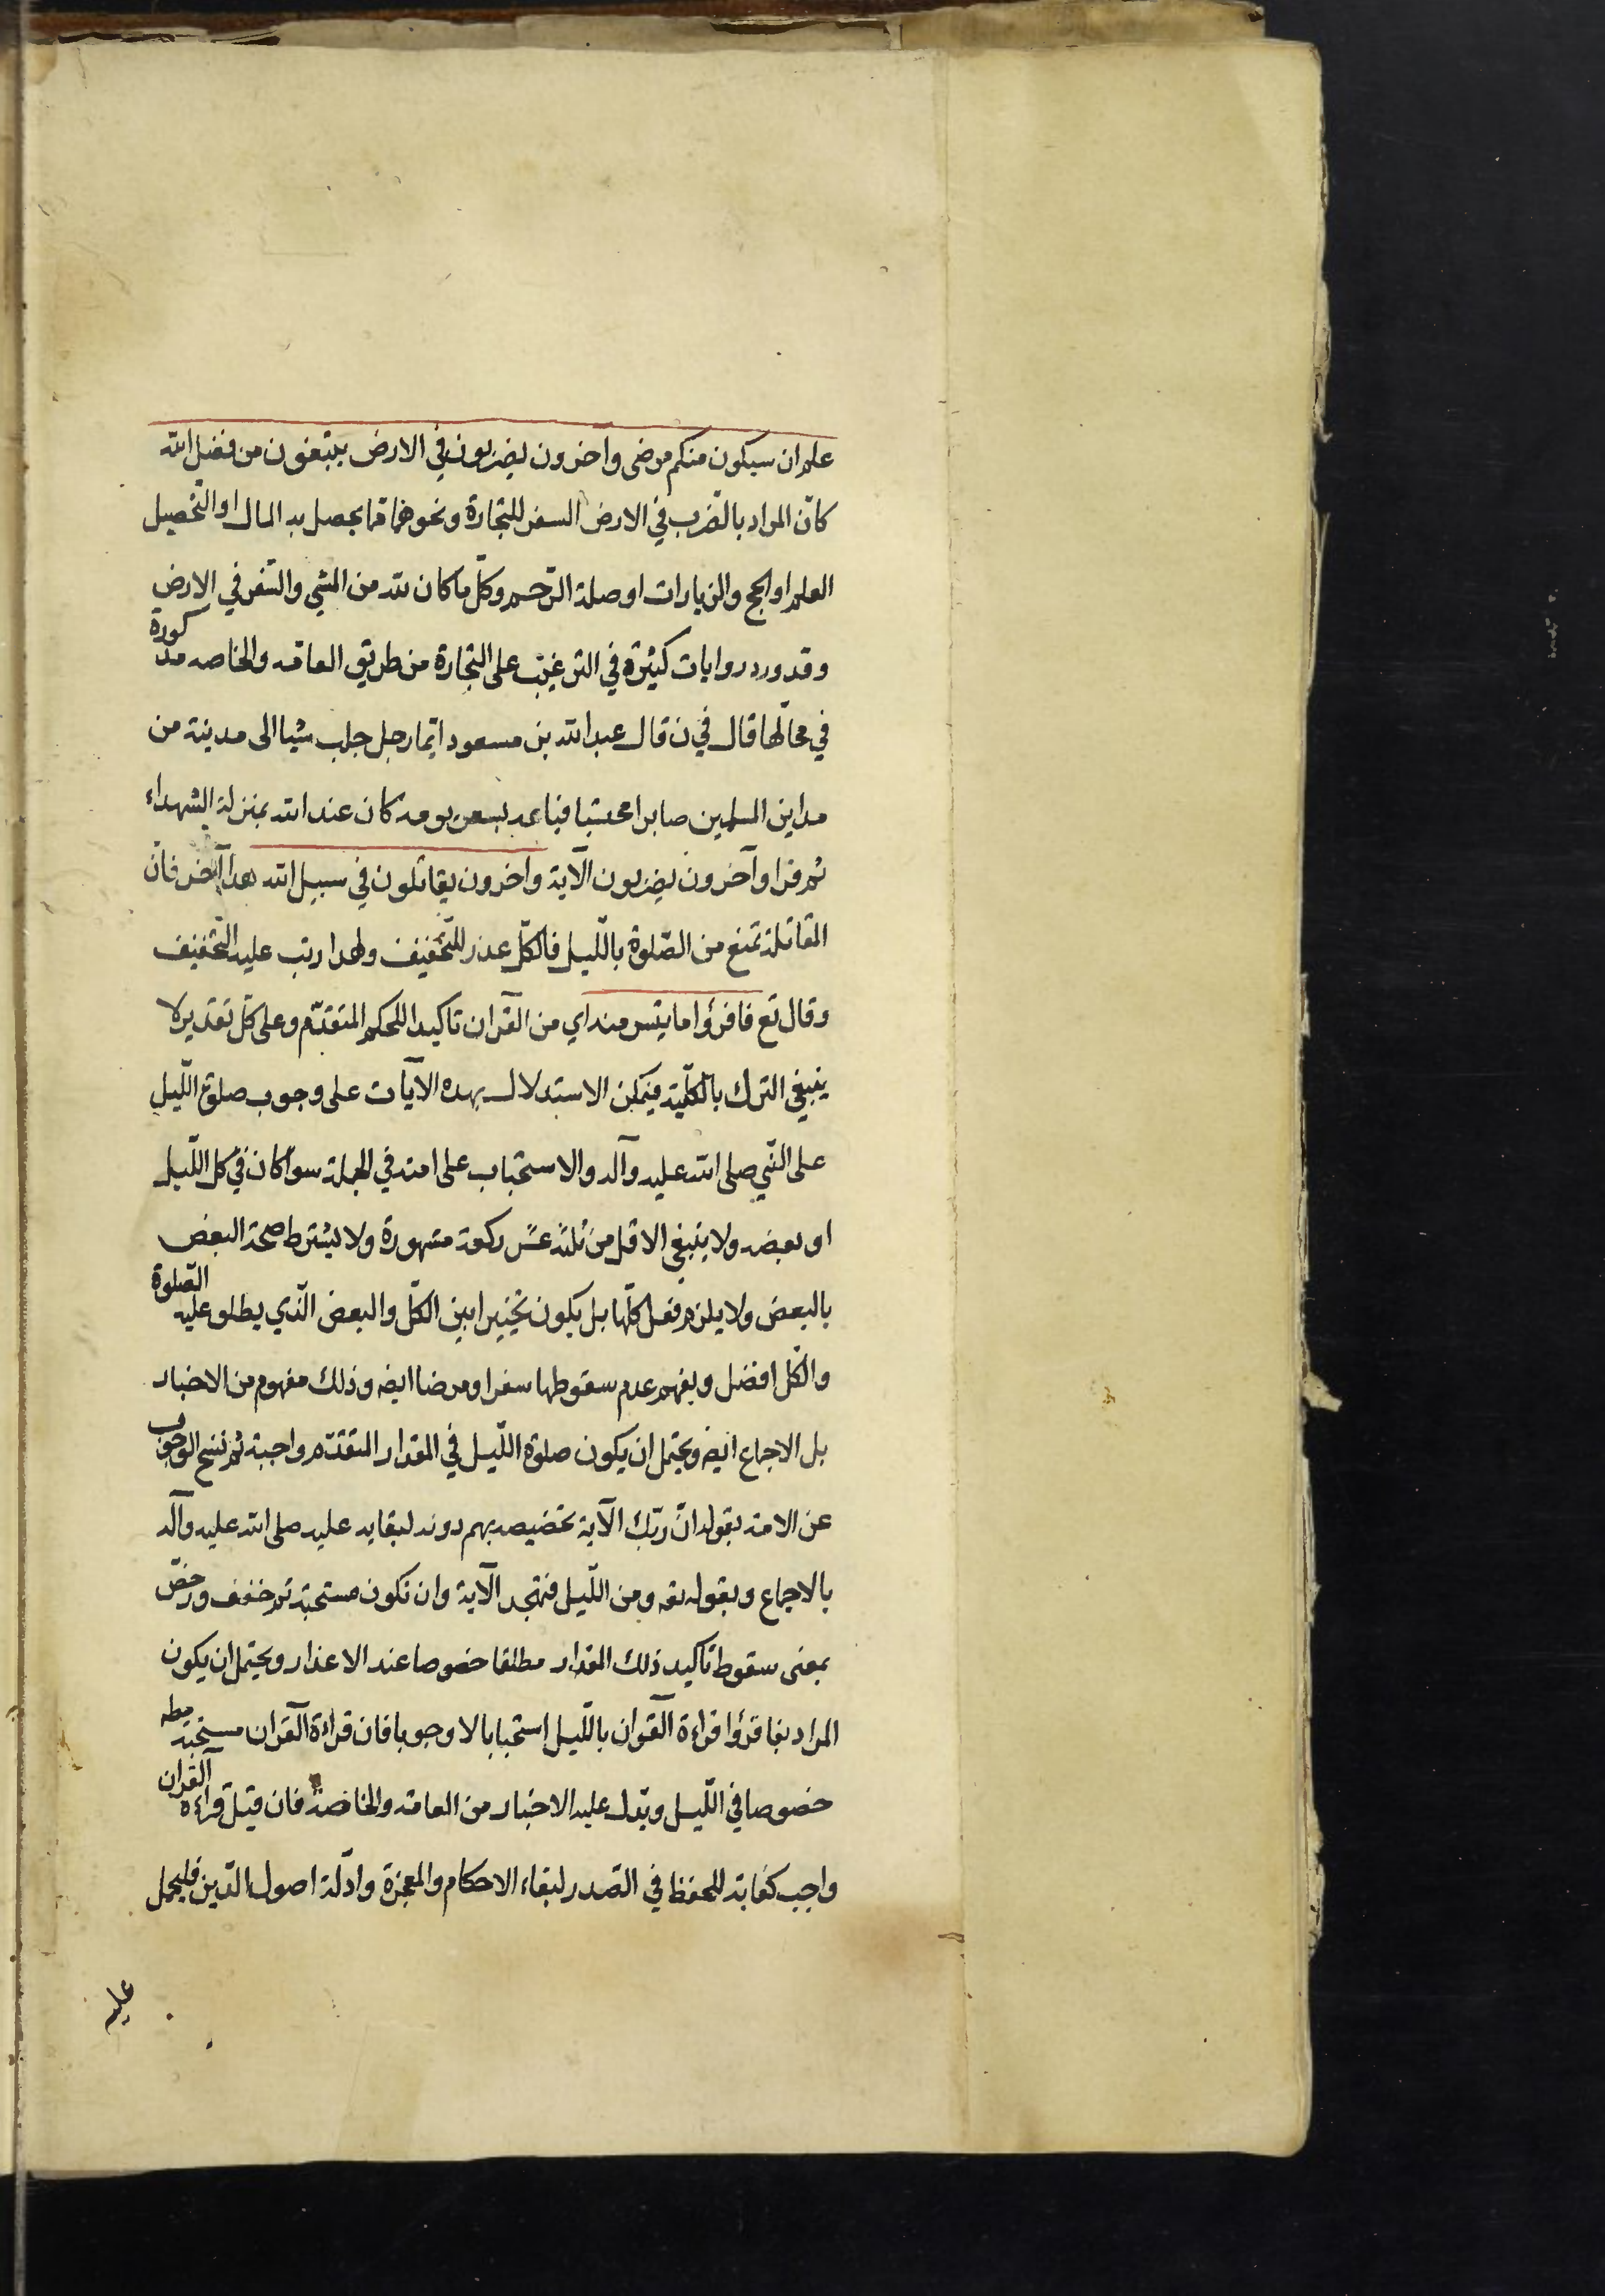 علم ان سيكون منكم مرضى وآخرون يضربون في الارض يبتغون من فضل الله
كانّ المراد بالضرب في الارض السفر للتجارة ونحوها مما يحصل به المال او التحصيل
العلم او الحج والزيارات او صلة الرّحم وكلّ ما كان لله من المشي والسّفر في الارض
وقد ورد روايات كثيرة في الترغيب على التجارة من طريق العامّه والخاصه مذكورة
في محالّها قال في ن قال عبد الله بن مسعود ايّما رجل جلب شيئا الى مدينة من
مداين المسلمين صابرا محتسبا فباعه بسعر يومه كان عند الله بمنزلة الشهداء
ثم قرا وآخرون يضربون الآية وآخرون يقاتلون في سبيل الله هذا آخر فانّ
المقاتلة تمنع من الصّلوة باللّيل فالكلّ عذر للتّخفيف ولهذا رتب عليه التّخفيف
وقال تع فاقرؤا ما تيسر منه اي من القرآن تاكيدا للحكم المتقدّم وعلى كلّ تقدير لا
ينبغي الترك بالكلّية فيمكن الاستدلال بهذه الآيات على وجوب صلوة اللّيل
على النّبي صلى الله عليه وآله والاستحباب على امته في الجملة سواء كان في كل اللّيل
او بعضه ولا ينبغي الاقل من ثلثة عشر ركعة مشهورة ولا يشترط صحة البعض
بالبعض ولا يلزم فعل كلّها بل يكون تخييرا بين الكلّ والبعض الّذي يطلق عليه الصّلوة
والكلّ افضل ويفهم عدم سقوطها سفرا ومرضا ايضه وذلك مفهوم من الاخبار
بل الاجماع ايضه ويحتمل ان يكون صلوة اللّيل في المقدار المتقدّم واجبة ثم نسخ الوجوب
عن الامة بقوله انّ ربّك الآية تخصيصه بهم دونه لبقايه عليه صلى الله عليه وآله
بالاجماع وبقوله تعه ومن اللّيل فتهجد الآية وان تكون مستحبة ثم خفف ورخّص
بمعنى سقوط تاكيد ذلك المقدار مطلقا خصوصا عند الاعذار ويحتمل ان يكون
المراد بفاقرؤا قراءة القرآن باللّيل استحبابا لا وجوبا فان قراءة القرآن مستحبّة مطه
خصوصا في اللّيل ويدل عليه الاخبار من العامّه والخاصّة فان قيل قراءة القرآن
واجب كفاية للحفظ في الصّدر لبقاء الاحكام والمعجزة وادلّة اصول الدّين فليحمل
عليه